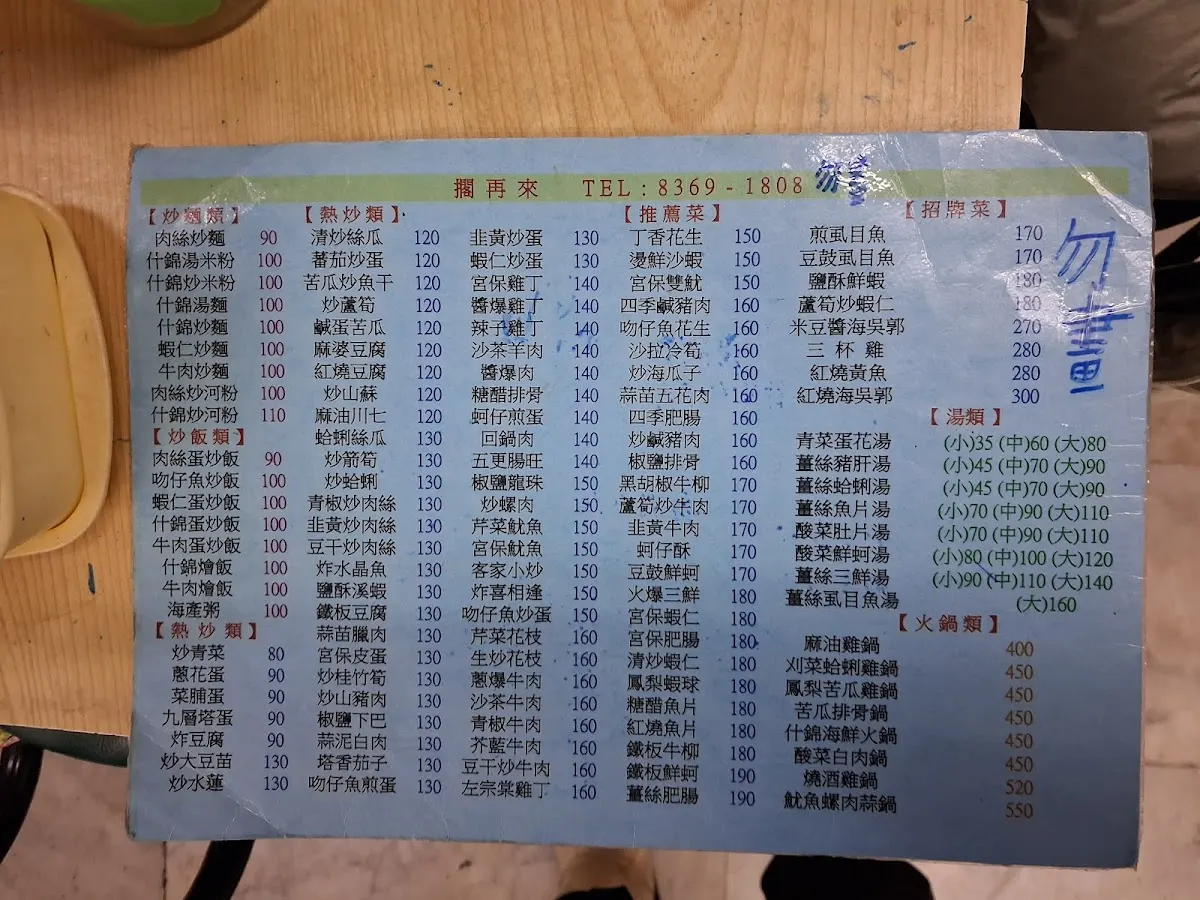 擱再來 TEL:8369-1808
勿畫
勿畫
【炒麵類】
肉絲炒麵 90
什錦湯米粉 100
什錦炒米粉 100
什錦湯麵 100
什錦炒麵 100
蝦仁炒麵 100
牛肉炒麵 100
肉絲炒河粉 100
什錦炒河粉 110
【炒飯類】
肉絲蛋炒飯 90
吻仔魚炒飯 100
蝦仁蛋炒飯 100
什錦蛋炒飯 100
牛肉蛋炒飯 100
什錦燴飯 100
牛肉燴飯 100
海產粥 100
【熱炒類】
炒青菜 80
蔥花蛋 90
菜脯蛋 90
九層塔蛋 90
炸豆腐 90
炒大豆苗 130
炒水蓮 130
【熱炒類】
清炒絲瓜 120
蕃茄炒蛋 120
苦瓜炒魚干 120
炒蘆筍 120
鹹蛋苦瓜 120
麻婆豆腐 120
紅燒豆腐 120
炒山蘇 120
麻油川七 120
蛤蜊絲瓜 130
炒箭筍 130
炒蛤蜊 130
青椒炒肉絲 130
韭黃炒肉絲 130
豆干炒肉絲 130
炸水晶魚 130
鹽酥溪蝦 130
鐵板豆腐 130
蒜苗臘肉 130
宮保皮蛋 130
炒桂竹筍 130
炒山豬肉 130
椒鹽下巴 130
蒜泥白肉 130
塔香茄子 130
吻仔魚煎蛋 130
韭黃炒蛋 130
蝦仁炒蛋 130
宮保雞丁 140
醬爆雞丁 140
辣子雞丁 140
沙茶羊肉 140
醬爆肉 140
糖醋排骨 140
蚵仔煎蛋 140
回鍋肉 140
五更腸旺 140
椒鹽龍珠 150
炒螺肉 150
芹菜魷魚 150
宮保魷魚 150
客家小炒 150
炸喜相逢 150
吻仔魚炒蛋 150
芹菜花枝 160
生炒花枝 160
蔥爆牛肉 160
沙茶牛肉 160
青椒牛肉 160
芥藍牛肉 160
豆干炒牛肉 160
左宗棠雞丁 160
【推薦菜】
丁香花生 150
燙鮮沙蝦 150
宮保雙魷 150
四季鹹豬肉 160
吻仔魚花生 160
沙拉冷筍 160
炒海瓜子 160
蒜苗五花肉 160
四季肥腸 160
炒鹹豬肉 160
椒鹽排骨 160
黑胡椒牛柳 170
蘆筍炒牛肉 170
韭黃牛肉 170
蚵仔酥 170
豆鼓鮮蚵 170
火爆三鮮 180
宮保蝦仁 180
宮保肥腸 180
清炒蝦仁 180
鳳梨蝦球 180
糖醋魚片 180
紅燒魚片 180
鐵板牛柳 180
鐵板鮮蚵 190
薑絲肥腸 190
【招牌菜】
煎虱目魚 170
豆鼓虱目魚 170
鹽酥鮮蝦 180
蘆筍炒蝦仁 180
米豆醬海吳郭 270
三杯雞 280
紅燒黃魚 280
紅燒海吳郭 300
【湯類】
青菜蛋花湯 (小)35 (中)60 (大)80
薑絲豬肝湯 (小)45 (中)70 (大)90
薑絲蛤蜊湯 (小)45 (中)70 (大)90
薑絲魚片湯 (小)70 (中)90 (大)110
酸菜肚片湯 (小)70 (中)90 (大)110
酸菜鮮蚵湯 (小)80 (中)100 (大)120
薑絲三鮮湯 (小)90 (中)110 (大)140
薑絲虱目魚湯 (大)160
【火鍋類】
麻油雞鍋 400
刈菜蛤蜊雞鍋 450
鳳梨苦瓜雞鍋 450
苦瓜排骨鍋 450
什錦海鮮火鍋 450
酸菜白肉鍋 450
燒酒雞鍋 520
魷魚螺肉蒜鍋 550